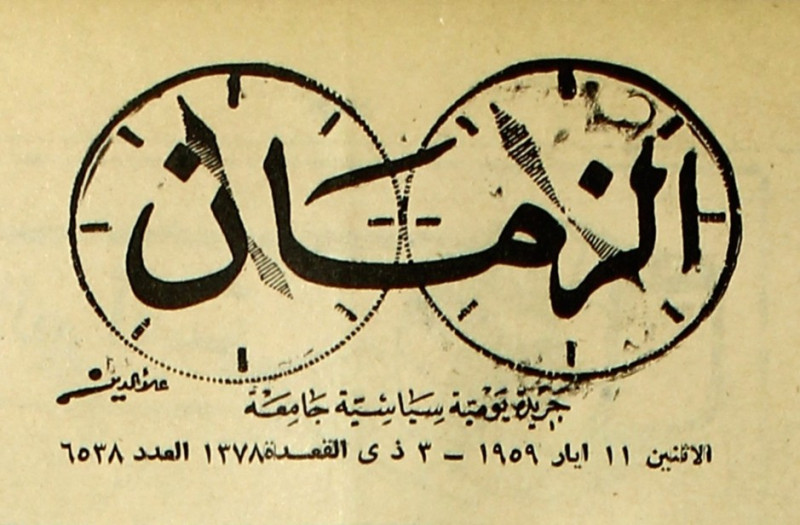 الزمان
علاء الدين
جريدة يومية سياسية جامعة
الاثنين ١١ ايار ١٩٥٩ – ٣ ذى القعدة ١٣٧٨ العدد ٦٥٣٨